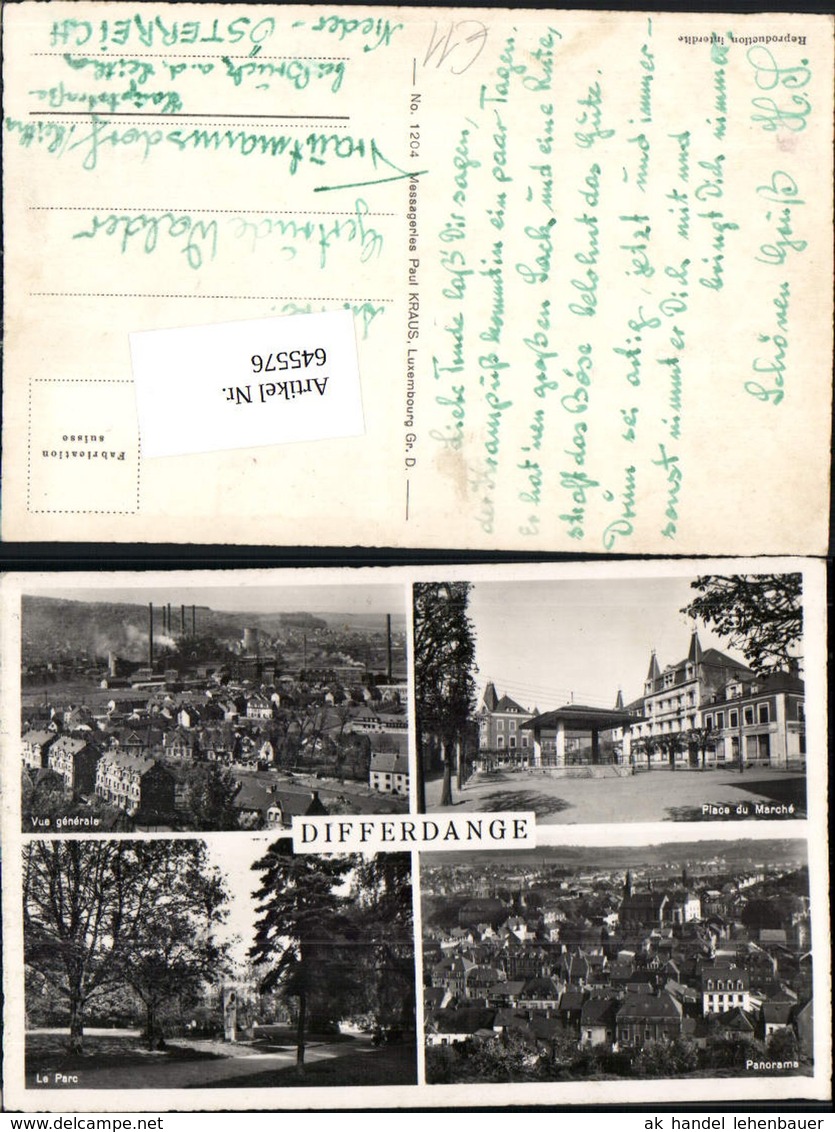 Liebe Trude laß Dir sagen,
der Krampuß kommt in ein paar Tagen.
Er hat 'nen großen Sack und eine Rute,
straft das Böse belohnt das Gute.
Drum sei artig, jetzt und immer-
sonst nimmt er Dich mit und
bringt Dich nimmer.
Schönen Gruß H.S.
Reproduction interdite
No. 1204 Messageries Paul KRAUS, Luxembourg Gr. D.
Fabrication
suisse
Artikel Nr.
645576
Gertrude Walder
Trautmannsdorf/Leitha
Hauptstraße
bei Bruck a.d. Leitha
Nieder-ÖSTERREICH
Vue générale
Place du Marché
DIFFERDANGE
Le Parc
Panorama
ak handel lehenbauer